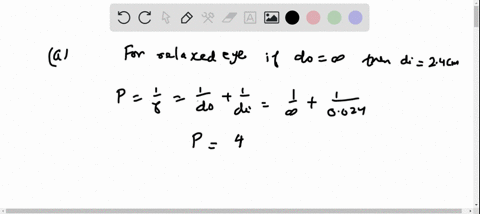 (a) For relaxed eye if do = ∞ then di = 2.4 cm
P = 1/f = 1/do + 1/di = 1/∞ + 1/0.024
P = 4